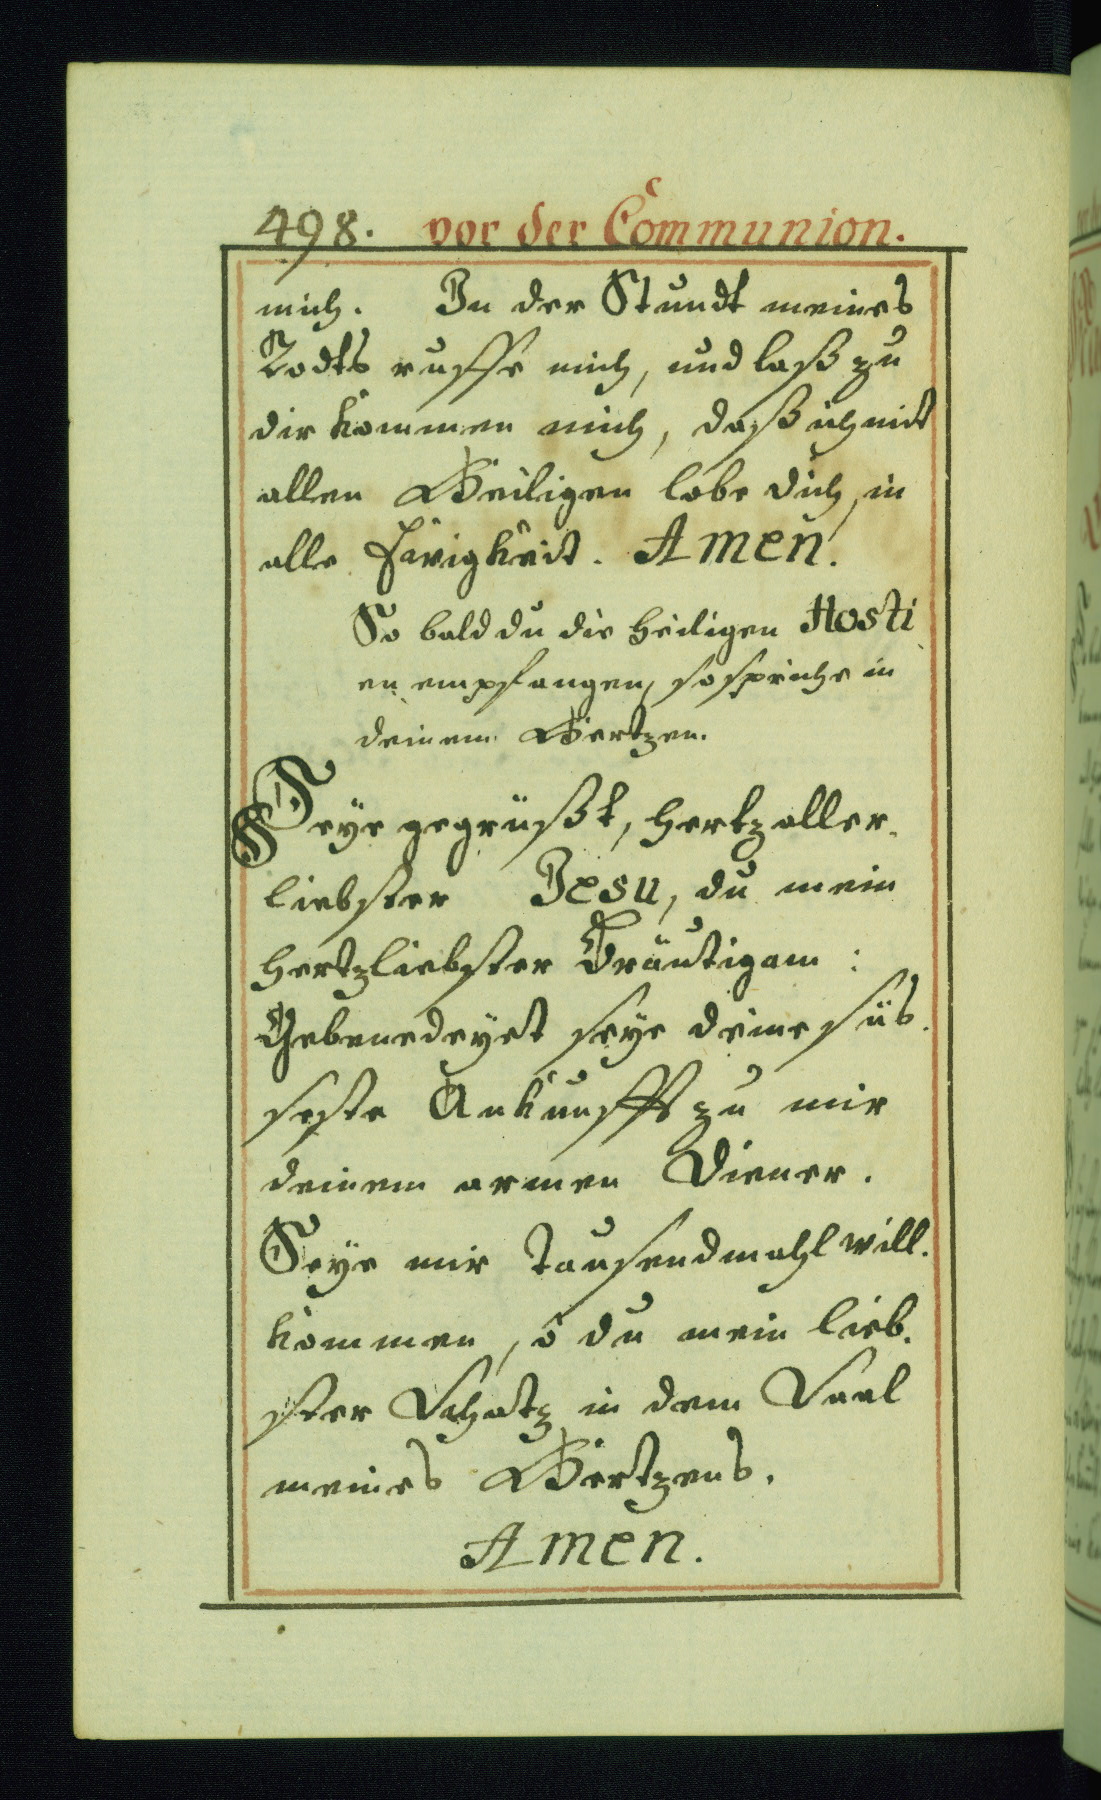 498. vor der Communion.
mich. In der Stundt meines
Todts ruffe mich, und laß zu
dir kommen mich, daß ich mit
allen Heiligen lobe dich, in
alle Ewigkeit. Amen.
So bald du die heiligen Hosti
en empfangen, so spriche in
deinem Hertzen.
Seye gegrüßt, hertzaller-
liebster Jesu, du mein
hertzliebster Bräutigam:
Gebenedeyet seye deine süs-
seste Ankunfft zu mir
deinem armen Diener.
Seye mir Tausendmahl will-
kommen, ô du mein lieb-
ster Schatz in dem Saal
meines Hertzens.
Amen.